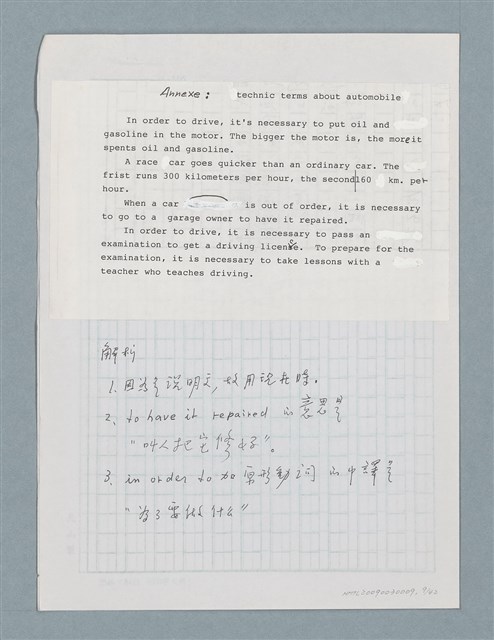 Annexe: technic terms about automobile
In order to drive, it's necessary to put oil and
gasoline in the motor. The bigger the motor is, the more it
spents oil and gasoline.
A race car goes quicker than an ordinary car. The
frist runs 300 kilometers per hour, the second 160 km. per
hour.
When a car is out of order, it is necessary
to go to a garage owner to have it repaired.
In order to drive, it is necessary to pass an
examination to get a driving license. To prepare for the
examination, it is necessary to take lessons with a
teacher who teaches driving.
解析
1. 因為是說明文,故用現在時。
2、to have it repaired 的意思是
“叫人把它修好”。
3、in order to 加原形動詞 的中譯是
“為了要做什么”